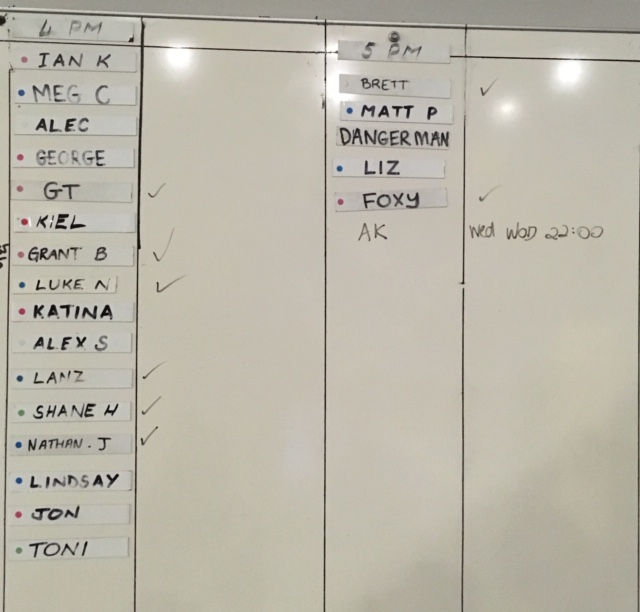 4 PM
IAN K
MEG C
ALEC
GEORGE
GT
KIEL
GRANT B
LUKE N
KATINA
ALEX S
LANZ
SHANE H
NATHAN. J
LINDSAY
JON
TONI
5 PM
BRETT
MATT P
DANGERMAN
LIZ
FOXY
AK Wed WOD 22:00